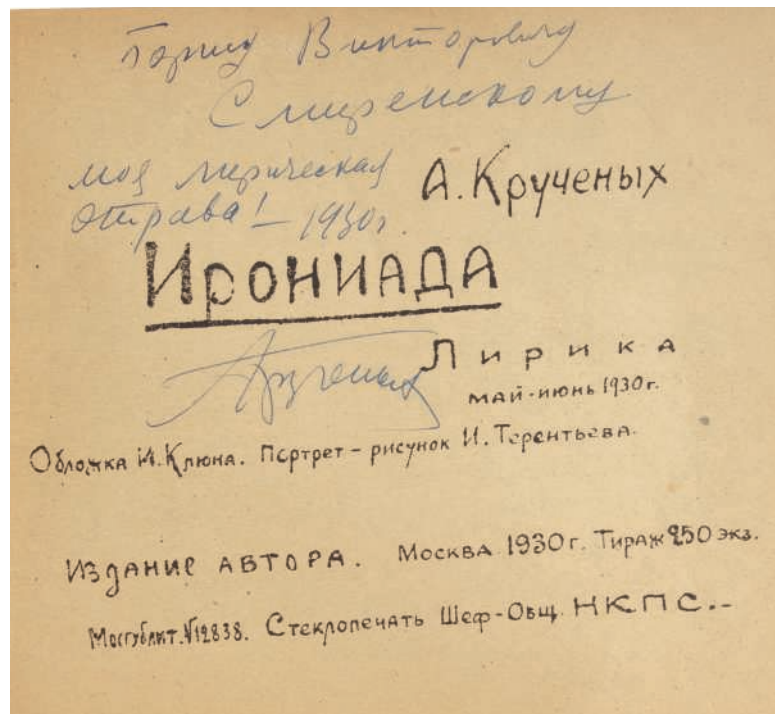 Борису Викторовичу
Смиренскому
моя лирическая
отрава! – 1930г.
А. Крученых
Ирониада
А Крученых
Лирика
май-июнь 1930г.
Обложка И. Клюна. Портрет – рисунок И. Терентьева.
Издание автора. Москва 1930г. Тираж 250 экз.
Мосгублит. №12838. Стеклопечать Шеф-Общ. НКПС.-